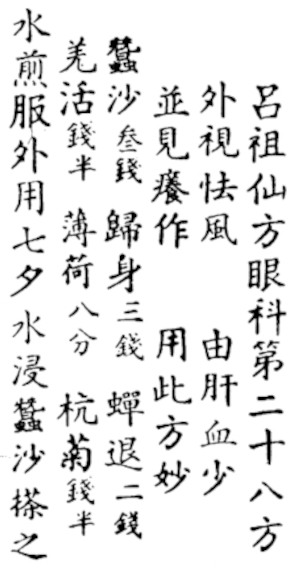 呂祖仙方眼科第二十八方
外視怯風 由肝血少
並見癢作 用此方妙
蠶沙叁錢 歸身三錢 蟬退二錢
羗活錢半 薄荷八分 杭菊錢半
水煎服外用七夕水浸蠶沙搽之